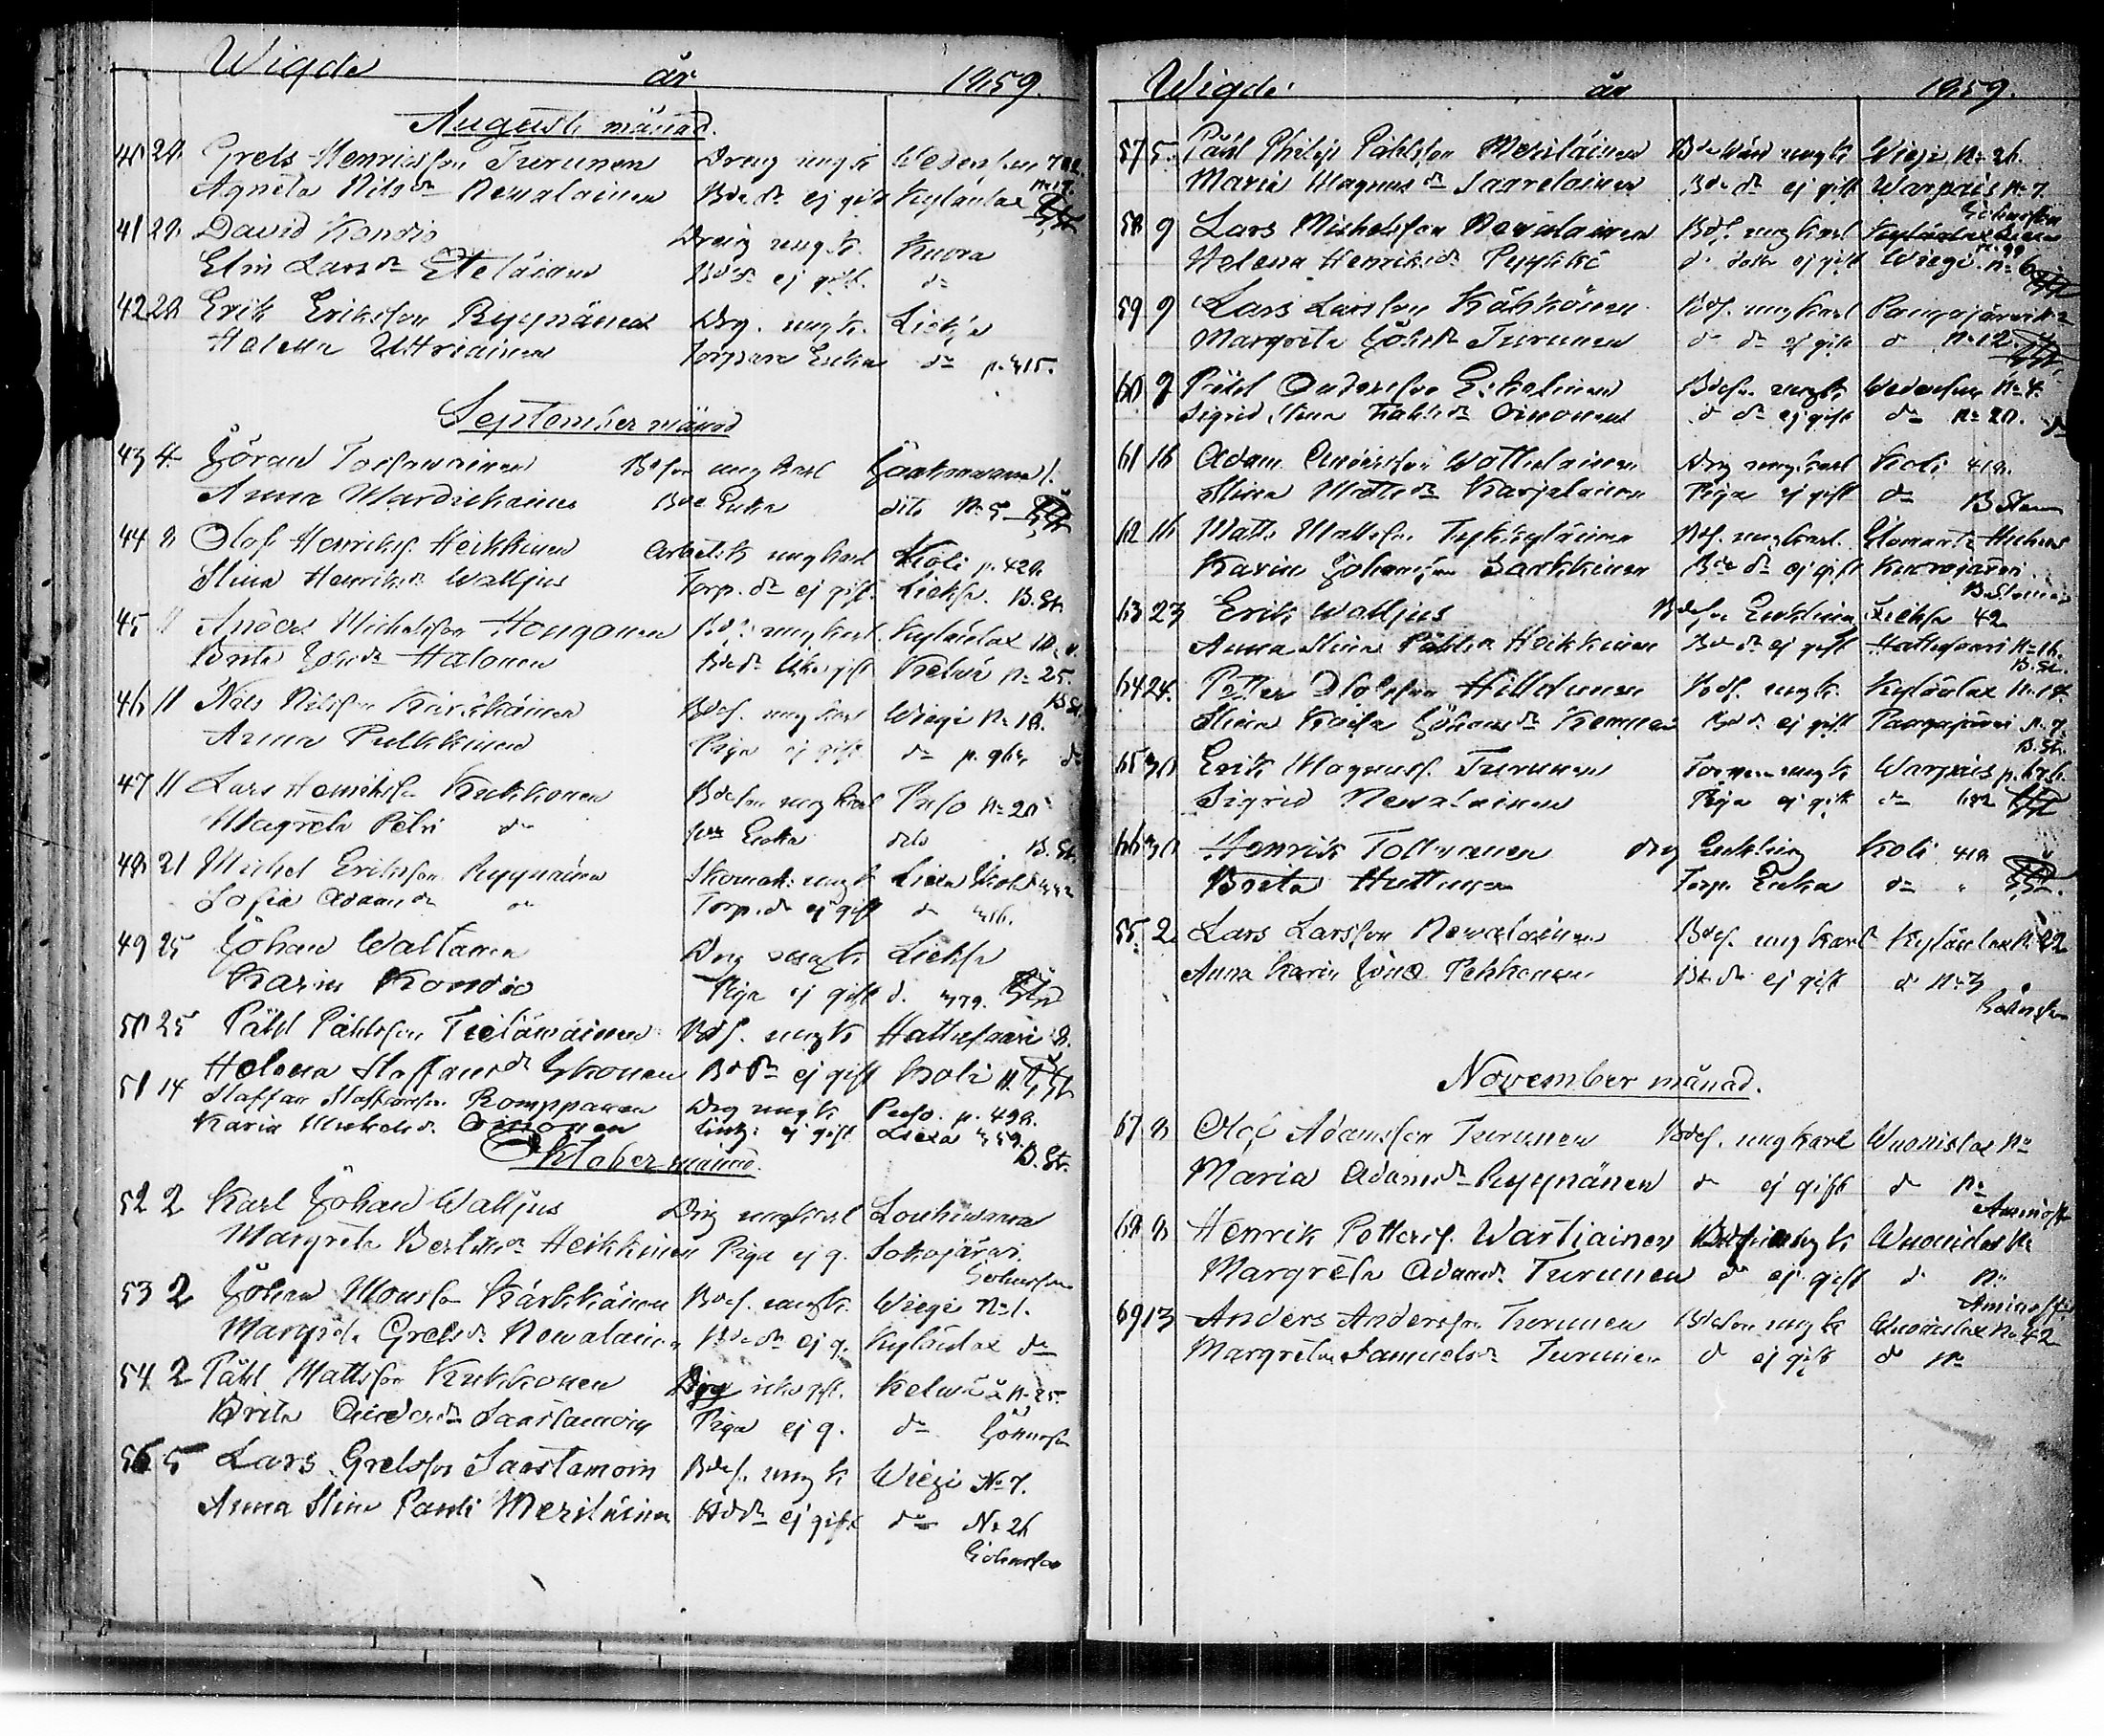 Wigde år 1859.
Augusti månad.
40 28. Grels Henricsson Turunen Dreng ungk Wedensuu 702.
Agneta Nilsdr Newalainen Bde dr ej gift Kylänlax No 17.
41 28 David Kondio Dreng ungk. Kuora
Elin Larsdr Eteläinen Bde dr ej gift. do
42 28 Erik Eriksson Ryynänen Drg. ungk. Lieksa
Helena Uttriainen Torpare Enka do p. 415.
September månad
43 4 Göran Torswainen Bdeson ungkarl
Anna Wardickainen Bde Enka dito No 5
44 8 Olof Henriks. Heikkinen Arbetsk ungkarl Koli p. 428.
Stina Henriksdr Walljus Torp. dr ej gift. Lieksa. B. St.
45 11 Anders Michelsson Hougonen Bdes. ungkarl. Kylänlax 10
Brita Johsdr Halonen Bde dr ej gift Kelwä No 25.
B St.
46 11 Nils Nilsson Kärkkäinen Bdes. ungkarl Wiegi No 18.
Anna Pulkkinen Piga ej gift do p. 96 do
47 11 Lars Henriksson Kukkonen Bdeson ungkarl Puso No 20
Magreta Petri do Enka dito B. St.
48 21 Michel Eriksson Ryynänen Skomak. ungk Lieksa
Sofia Adamdr do Torp. dr ej gift do 416.
49 25 Johan Waltanen Drg ungk Lieksa
Karin Kondio Piga ej gift d. 479.
50 25 Påhl Påhlsson Tietäwäinen Bdes. ungk Hattusaari 8.
Helena Staffansdr Ikonen Bde dr ej gift Koli
51 14 Staffan Staffansson Romppanen Drg ungk Puso. p. 498.
Karin Mickelsdr. Oinonen ej gift Lieksa 459.
B. St.
Oktober månad.
52 2 Karl Johan Walljus Drg ungkarl Louhiwaara
Margreta Bertilsdr Heikkinen Piga ej g. Sokojärwi
53 2 Johan Monsson Kärkkäinen Bdes. ungk. Wiegi No 1.
Margreta Grelsdr Newalainen Bde dr ej g. Kylänlax do
54 2 Påhl Mattsson Kukkonen Drg gift. Kelwä No 25.
Brita Andersdr Saastamoin Piga ej g. do
56 5 Lars Grelsson Saastamoin Bdes. ungk Wiegi No 7.
Anna Stina Pauli Meriläinen Bde dr ej gift do No 26
Wigde år 1859.
57 5. Påhl Philip Påhlsson Meriläinen ungk Wiegi No 26.
Maria Magnusdr Saarelainen Bde dr ej gift Warpais No 7
58 9 Lars Michelsson Newalainen Bdes. ungkarl
Helena Henriksdr Pyykkö do doter ej gift Wiegi. No 6
59 9 Lars Larsson Kähkönen Bdes. ungkarl Pangajärwi No 2
Margreta Johsdr Turunen do dr ej gift do No 12.
60 9 Påhl Andersson Eskelinen Bdeson ungk Wedensuu No 4.
Sigrid Stina Påhlsdr Oinonen do dr ej gift do No 20. do
61 16 Adam Andersson Wattulainen Drg ungkarl Koli 418.
Stina Mattsdr Karjalainen Piga ej gift do
62 16 Matts Mattsson Bdes. ungkarl.
Karin Johansdr Sarkkinen Bde dr ej gift Kuorajärwi.
63 23 Erik Walljus Bdeson Enkling Lieksa 42
Anna Stina Påhlsdr Heikkinen Bde dr ej gift Hattusaari No 16.
B. St.
64 24. Petter Olofsson Hilldunen Bdes. ungk. Kylänlax No 14.
Stina Kaisa Johansdr Kemin Bde dr ej gift Pangajärwi No 7.
B. St.
65 30 Erik Magnuss. Turunen ungk Warpais p. 676.
Sigrid Newalainen Piga ej gift do 682
66 30 Henrik Tollwanen drg Enkling Koli 418
Brita Huttunen Torp. Enka do "
55. 2. Lars Larsson Newalainen Bdes. ungkarl Kylänlax No 22
Anna Karin Jöns Pekkonen Bde dr ej gift do No 3
November månad.
67 8 Olof Adamsson Turunen Bdes. ungkarl Wuonislax No
Maria Adamsdr Ryynänen do ej gift do No
Aminoff
68 8 Henrik Petters. Wartiainen ungk Wuonislax No
Margreta Adamsdr Turunen do ej gift do No
Aminoff
69 13 Anders Andersson Turunen Bdeson ungk Wuonislax No 42
Margreta Samuelsdr Turunen do ej gift do No